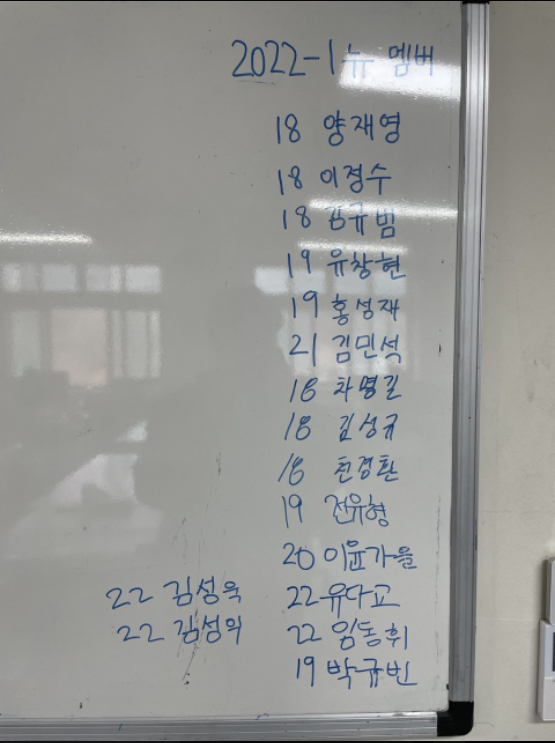 2022-1 뉴 멤버
18 양재영
18 이경수
18 김규범
19 유창현
19 홍성재
21 김민석
18 차명길
18 김성규
18 천경환
19 전유형
20 이윤가을
22 김성욱 22 유다교
22 김성의 22 임동휘
19 박규빈